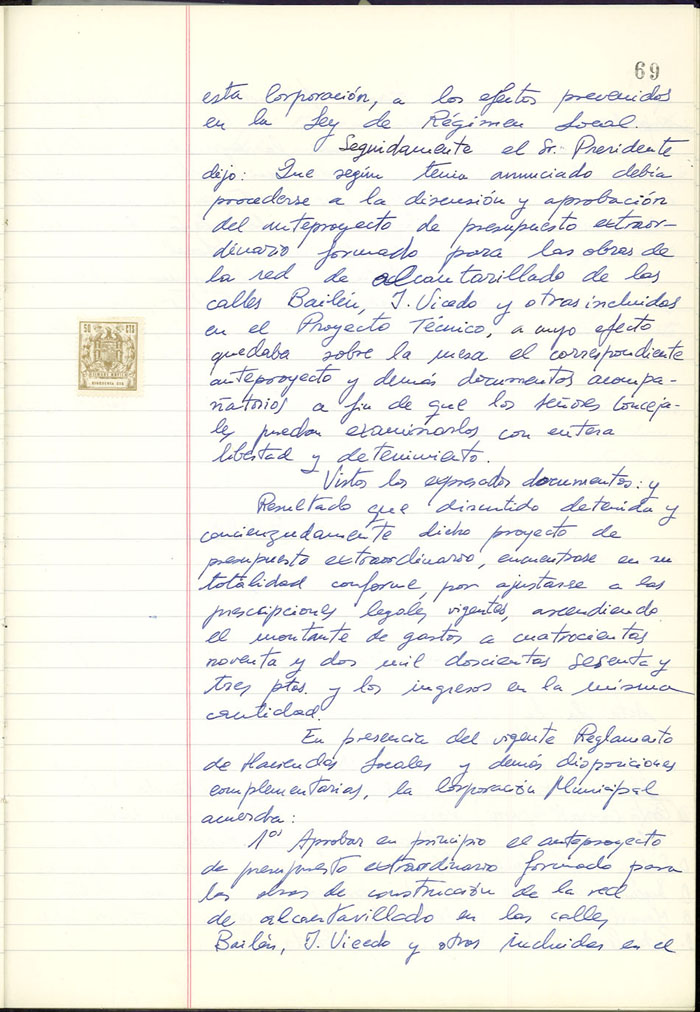 69
esta Corporación, a los efectos prevenidos
en la Ley de Régimen Local.
Seguidamente el Sr. Presidente
dijo: Que según tenia anunciado debía
procederse a la discusión y aprobación
del anteproyecto de presupuesto extraor-
dinario formado para las obras de
la red de alcantarillado de las
calles Bailén, J. Vicedo y otras incluidas
en el Proyecto Técnico, a cuyo efecto
quedaba sobre la mesa el correspondiente
anteproyecto y demás documentos acompa-
ñatorios a fin de que los señores Conceja-
les puedan examinarlos con entera
libertad y detenimiento.
Vistos los expresados documentos: y
Resultado que discutido detenida y
concienzudamente dicho proyecto de
presupuesto extraordinario, encuentrase en su
totalidad conforme, por ajustarse a las
prescripciones legales vigentes, ascendiendo
el montante de gastos a cuatrocientas
noventa y dos mil doscientas sesenta y
tres ptas. y los ingresos en la misma
cantidad.
En presencia del vigente Reglamento
de Haciendas Locales y demás disposiciones
complementarias, la Corporación Municipal
acuerda:
1º Aprobar en principio el anteproyecto
de presupuesto extraordinario formado para
las obras de construcción de la red
de alcantarillado en las calles
Bailén, J. Vicedo y otras incluidas en el
50 CTS